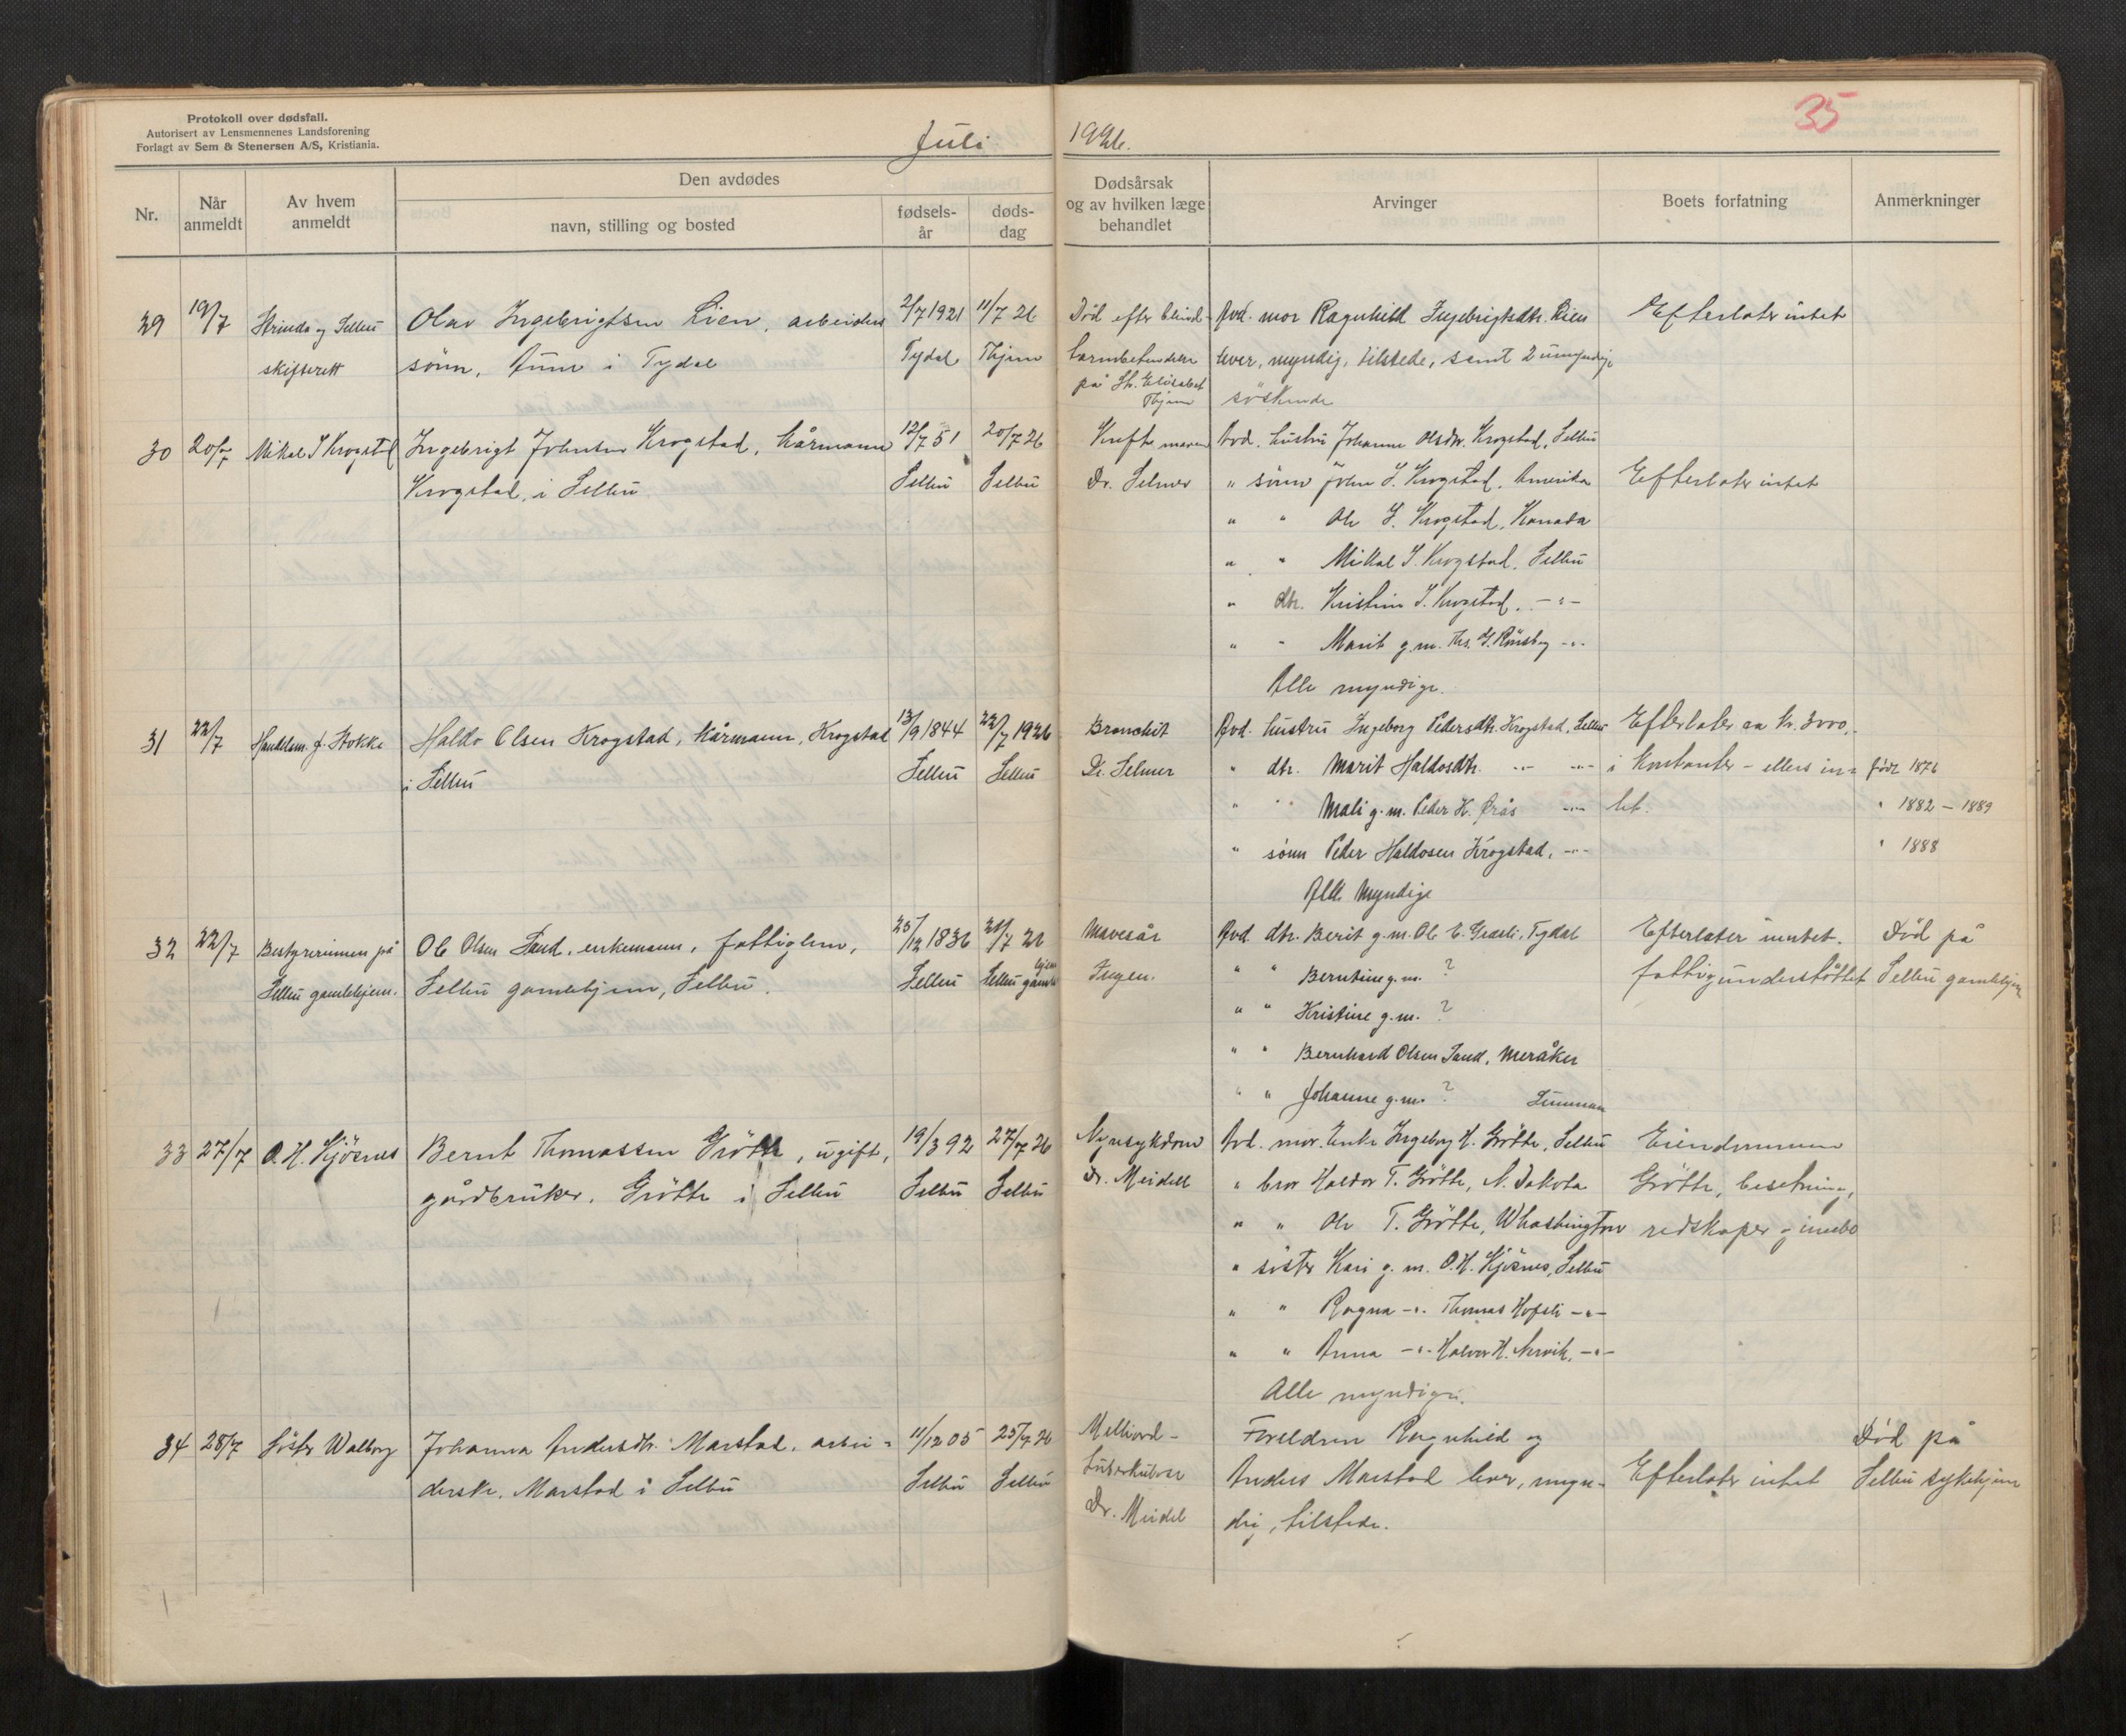 Protokoll over dødsfall.
Autorisert av Lensmennenes Landsforening
Forlagt av Sem & Stenersen A/S, Kristiania.
Juli 1926.
35
Nr.
Når anmeldt
Av hvem anmeldt
Den avdødes
navn, stilling og bosted
fødsels-år
døds-dag
Dødsårsak
og av hvilken læge
behandlet
Arvinger
Boets forfatning
Anmerkninger
29 19/7 Strinda og Selbu Olav Ingebrigtsen Lien, arbeiders 2/7 1921 11/7 26 Død efter blind- Avd. mor Ragnhild Ingebrigtsdtr. Lien Efterlater intet
skifterett sønn, Aune i Tydal Tydal Thjem lever, myndig, tilstede, samt 2 umyndige
på St. Elisabet
Thjem søskende
30 20/7 Mikal I Krogstad Ingebrigt Johnsen Krogstad, kårmann 12/7 51 20/7 26 Kreft maven Avd. hustru Johanne Olsdtr. Krogstad, Selbu
Krogstad, i Selbu Selbu Selbu Dr. Selmer " sønn John I. Krogstad, Amerika Efterlater intet
" " Ole I. Krogstad, Kanada
" " Mikal I. Krogstad, Selbu
" dtr. Kristine I. Krogstad, -"-
" " Marit g.m. Ths. J. Rönsberg -"-
Alle myndige.
31 22/7 Handelsm. J. Stokke Haldo Olsen Krogstad, kårmann, Krogstad 13/9 1844 22/7 1926 Bronchit Avd. hustru Ingeborg Pedersdtr. Krogstad, Selbu Efterlater ca kr. 3000,-
i Selbu Selbu Selbu Dr. Selmer " dtr. Marit Haldosdtr. -"- -"- i Kontanter - ellers in= født 1876
" " Mali g.m. Peder H. Ørås -"- tet. " 1882 - 1889
" sønn Peder Haldosen Krogstad, -"- " 1888
Alle Myndige
32 22/7 Bestyrerinnen på Ole Olsen Sand, enkemann, fattiglem, 25/12 1836 21/7 26 Mavesår Avd. dtr. Berit g.m. Ole E. Græsli, Tydal Efterlater intet. Død på
Selbu gamlehjem. Selbu gamlehjem, Selbu. Selbu Selbu gamlehjem Ingen. " " Berntine g.m. ? fattigunderstöttet Selbu gamlehjem
" " Kristine g.m. ?
" " Bernhard Olsen Sand, Meråker
" " Johanne g.m. ?
33 27/7 O. H. Kjösnes Bernt Thomassen Grötte, ugift, 19/3 92 27/7 26 Nyresykdom Avd. mor. Enke Ingeborg H. Grötte, Selbu Eiendommen
gårdbruker, Grötte i Selbu Selbu Selbu Dr. Meidell " bror Haldor T. Grötte, N. Dakota Grötte, besetning,
" " Ole T. Grötte, Whashington redskaper og innebo
" söster Kari g. m. O. H. Kjösnes, Selbu
" " Ragna -"- Thomas Hofsli -"-
" " Anna -"- Halvor H. Nervik, -"-
Alle myndige.
34 28/7 Söster Walborg Johanna Andersdtr. Marstad, arbei= 11/12 05 25/7 26 Foreldrene Ragnhild og Død på
derske, Marstad i Selbu Selbu Selbu tuberkulose Anders Marstad lever, myn= Efterlater intet Selbu sykehjem
Dr. Meidel dig, tilstede.